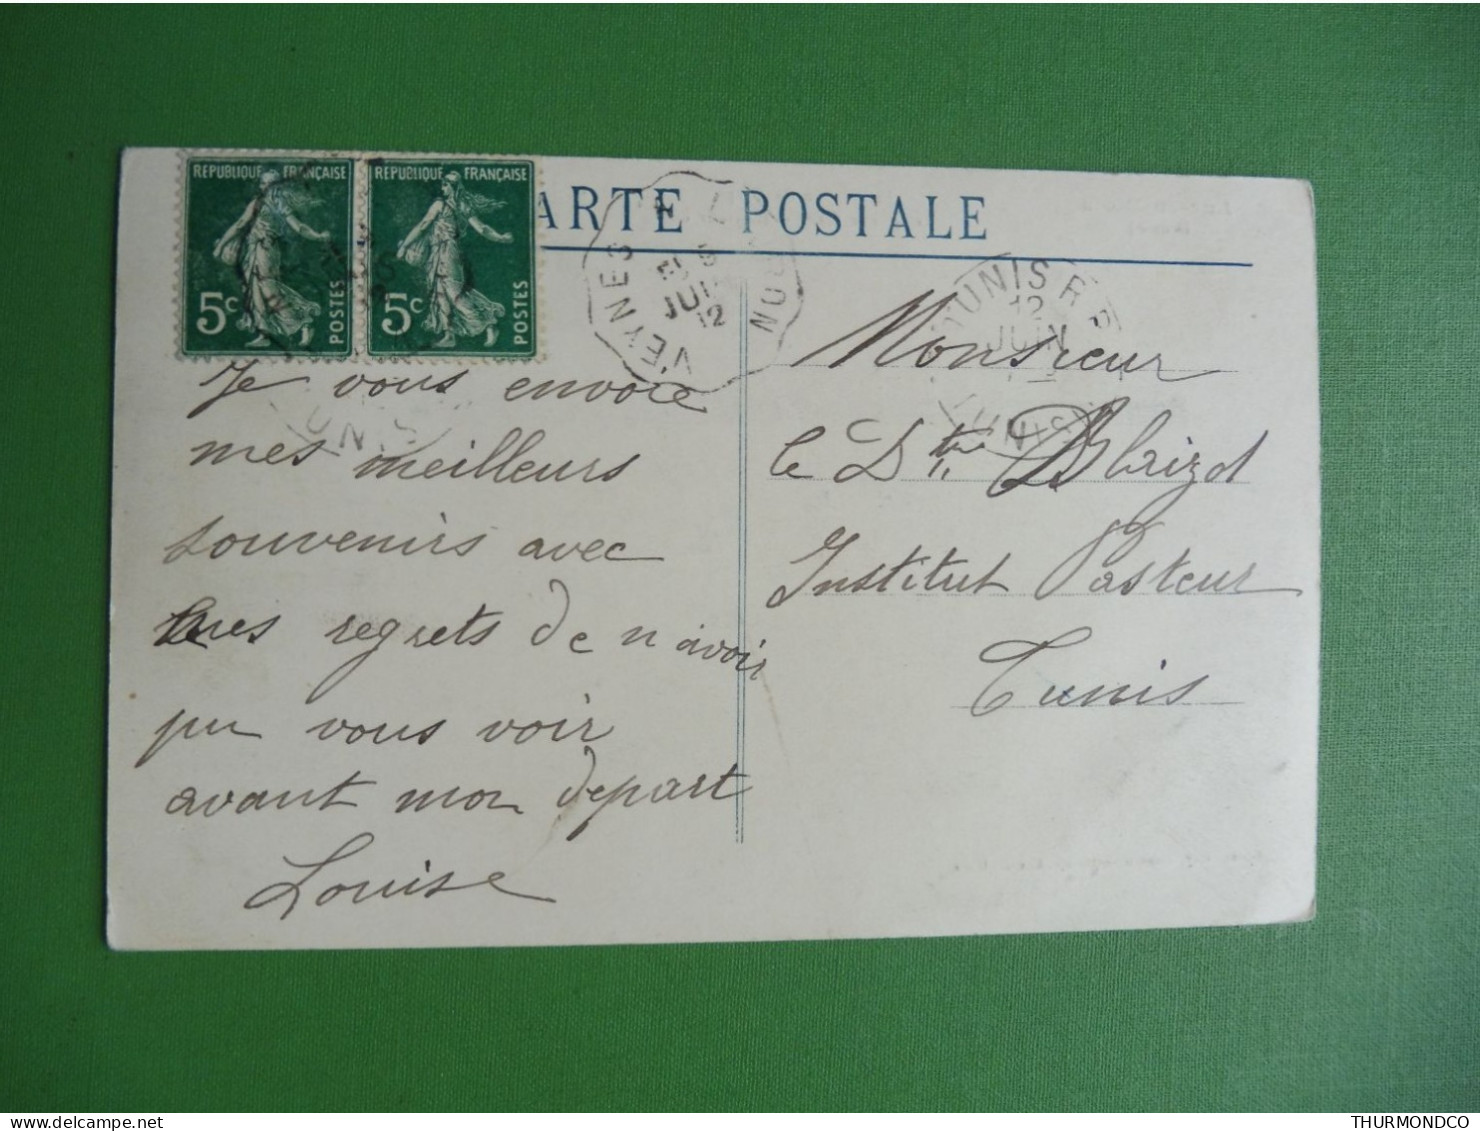 REPUBLIQUE FRANÇAISE
5c POSTES
REPUBLIQUE FRANÇAISE
5c POSTES
ARTE POSTALE
VEYNES A LYON
JUIN
12
TUNIS R.P.
12
JUIN
12
TUNISIE
TUNIS
Je vous envoie
mes meilleurs
souvenirs avec
mes regrets de n'avoir
pu vous voir
avant mon départ
Louise
Monsieur
le Dteur Blaizot
Institut Pasteur
Tunis
THURMONDCO